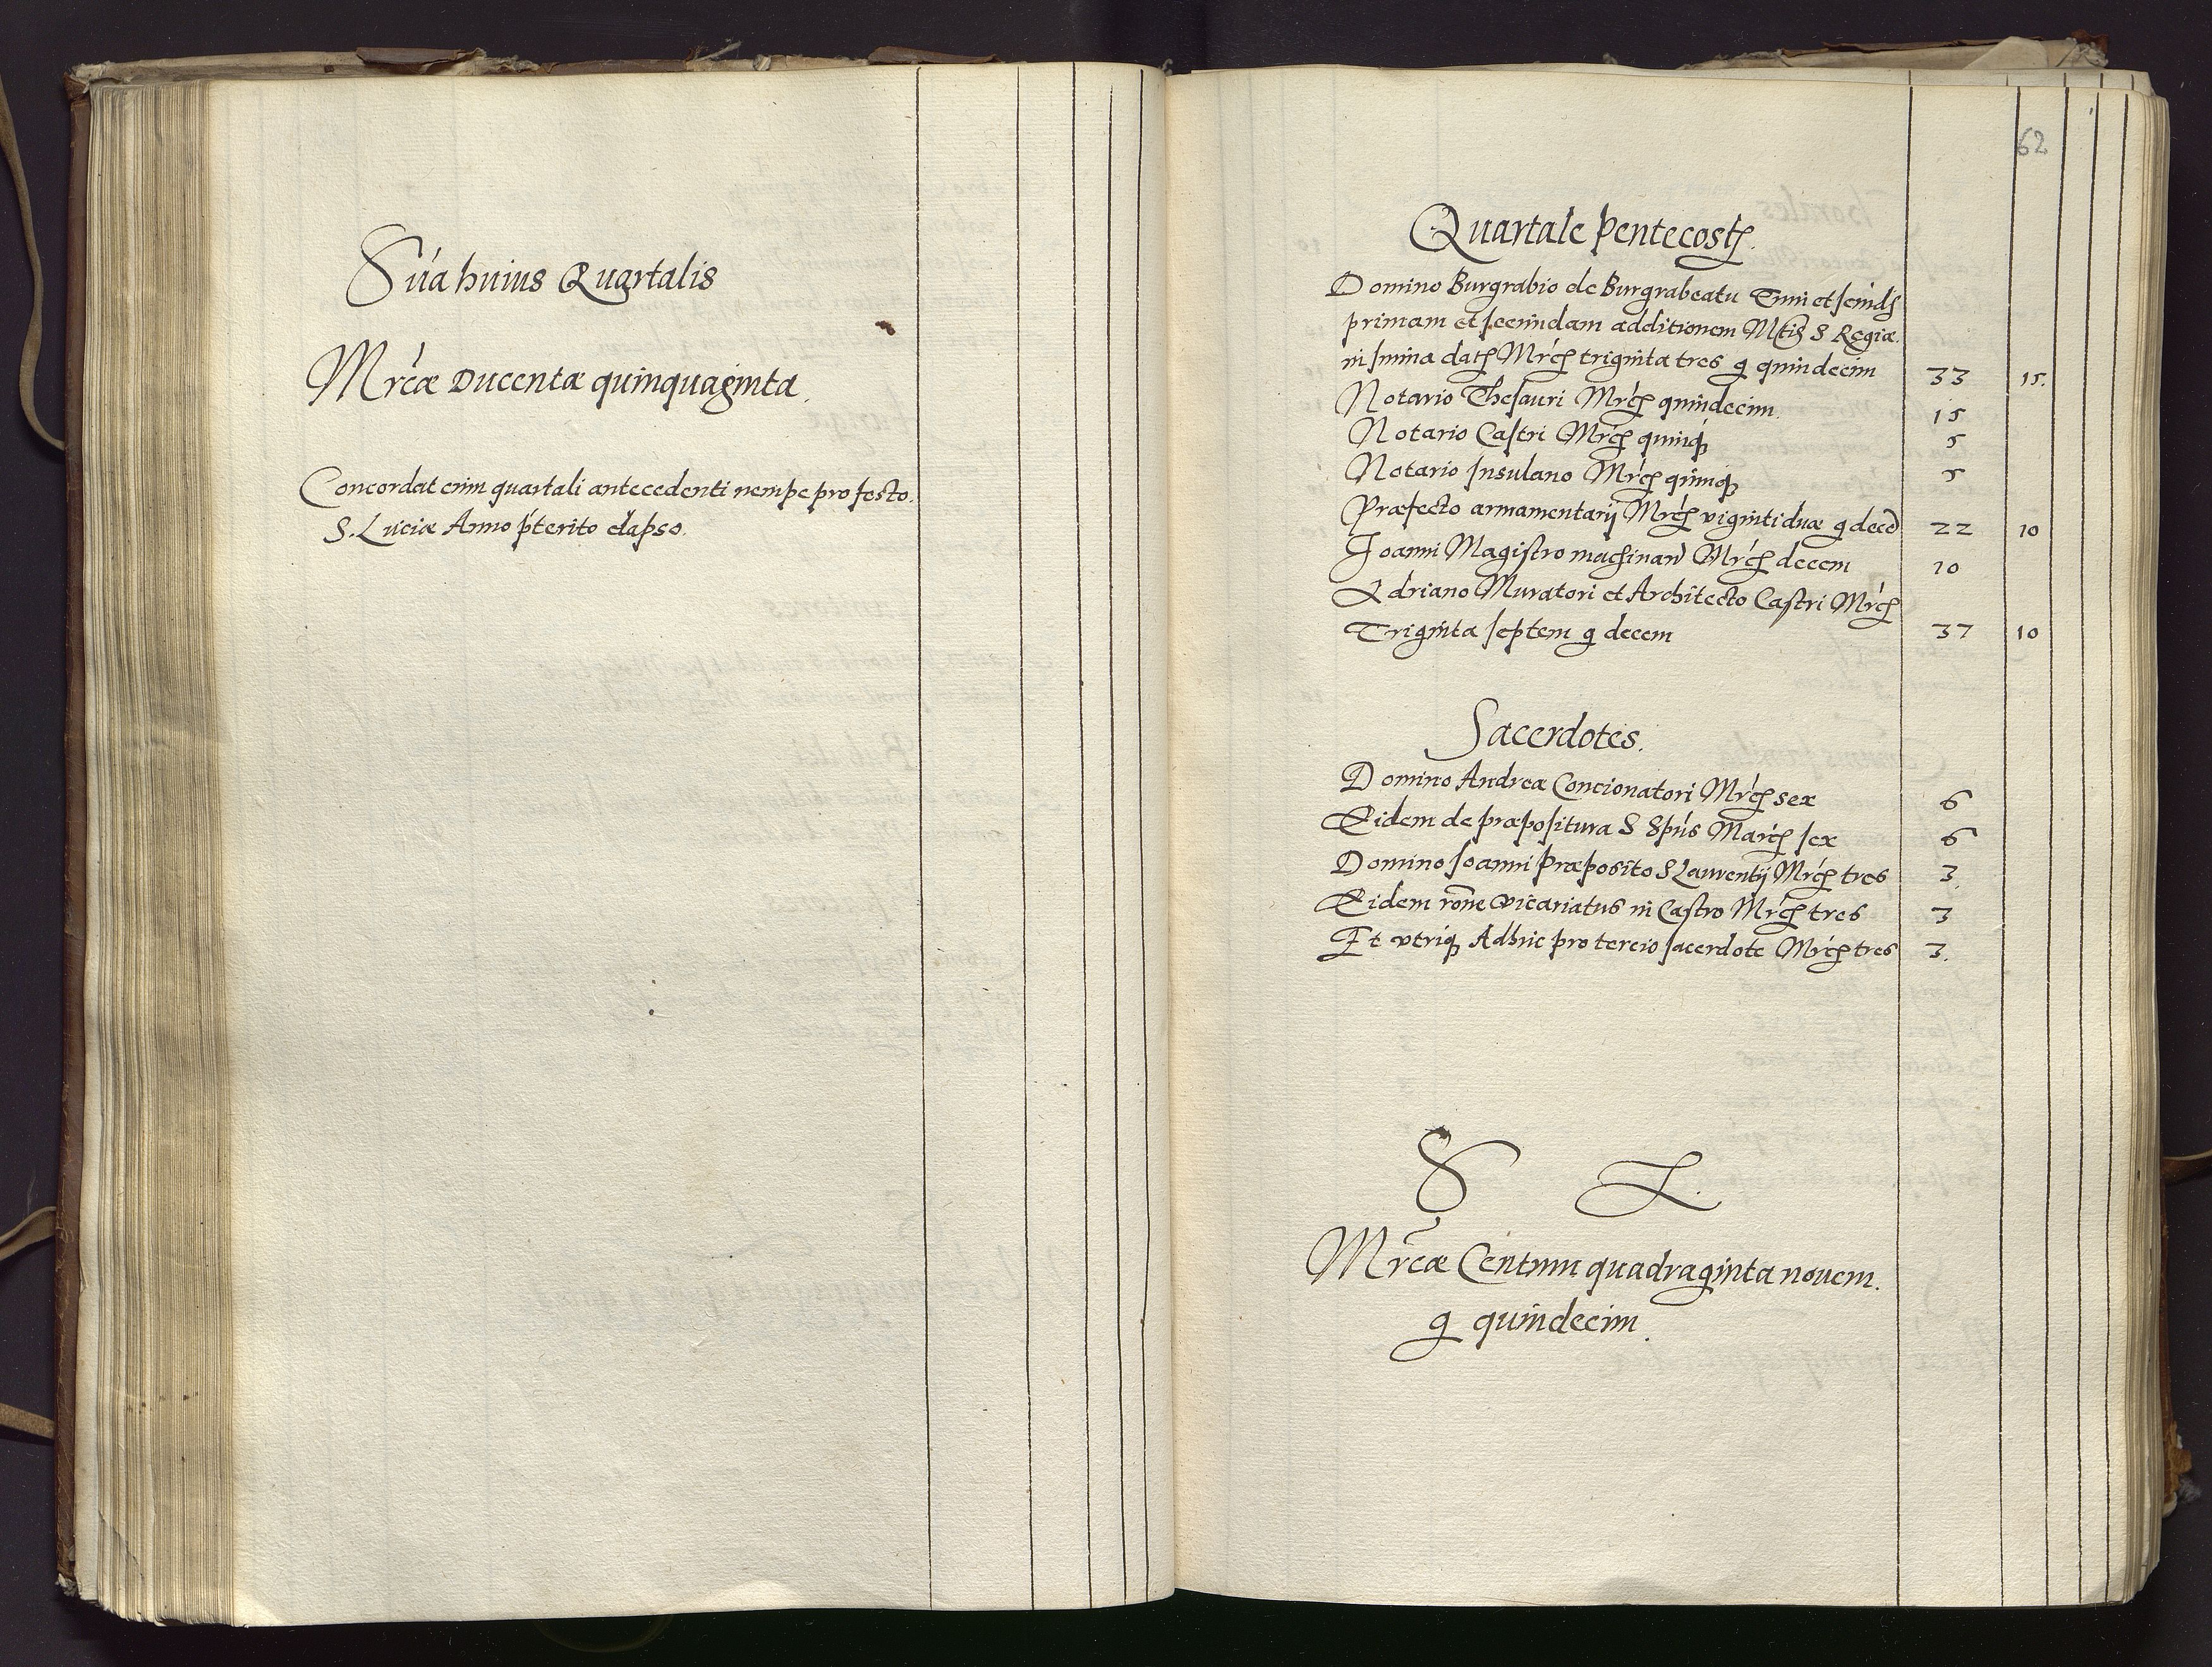 Sūa huius Quartalis
Mrcæ Ducentæ quinquaginta.
Concordat cum quartali antecedenti nempe pro festo.
S. Luciæ Anno pterito elapso.
62
Quartale Pentecost
Domino Burgrabio de Burgrabeatu et
primam et secundam additionem Mtis S Regiæ.
in suma Mrc triginta tres g quindecim 33 15.
Notario Thesauri Mrc quindecim 15
Notario Castri Mrc quinq 5
Notario Insulano Mrc quinq 5
Præfecto armamentarij Mrc viginti duæ g dece 22 10
Joanni Magistro machinar Mrc decem 10
Adriano Muratori et Architecto Castri Mrc
Triginta septem g decem 37 10
Sacerdotes.
Domino Andreæ Concionatori Mrc sex 6
Eidem de præpositura S Spūs Marc sex 6
Domino Joanni Præposito S Laurentij Mrc tres 3.
Eidem rone vicariatus in Castro Mrc tres 3
Et utriq Adhuc pro tercio sacerdote Mrc tres 3.
S L.
Mrcæ Centum quadraginta novem.
g quindecim.